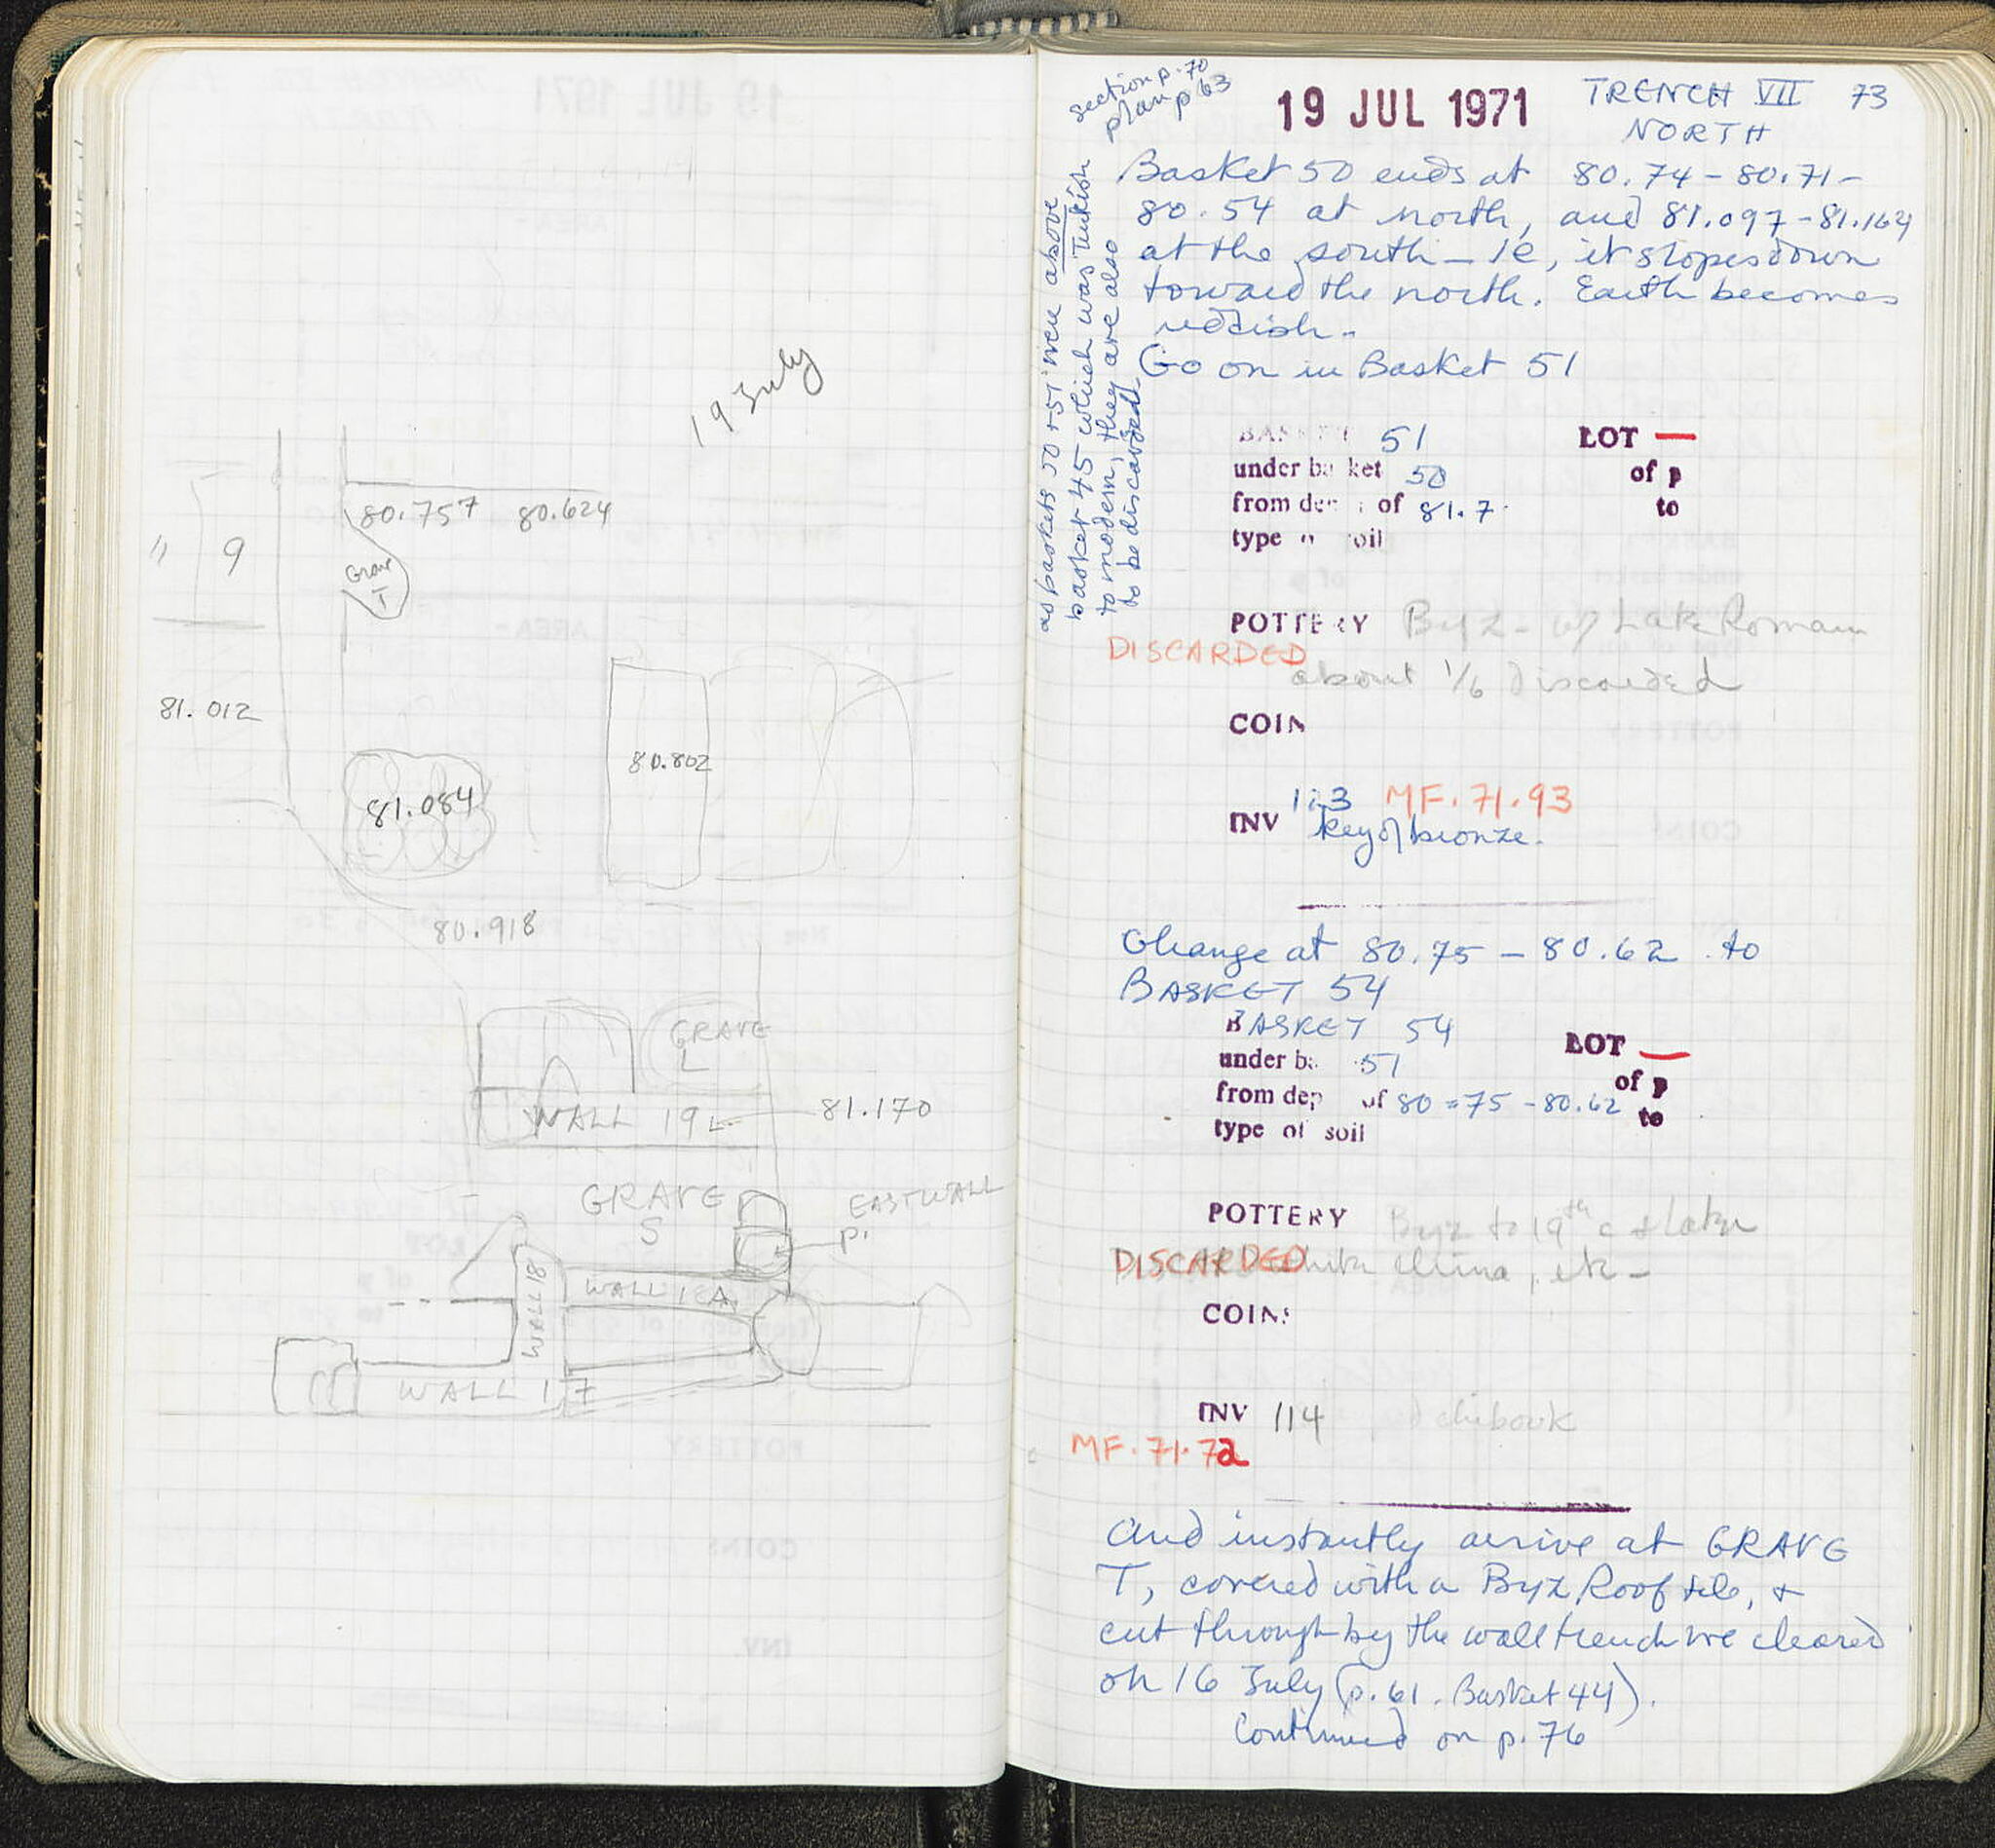 19 July
80.757 80.624
" 9
Grave
T
81.012
80.802
81.084
80.918
GRAVE
L
WALL 19 81.170
GRAVE
S
EAST WALL
P.
WALL 18
WALL 1A
WALL 17
section p. 70
plan p 63
19 JUL 1971
TRENCH VII 73
NORTH
Basket 50 ends at 80.74 - 80.71 -
80.54 at north, and 81.097 - 81.164
at the south - ie, it slopes down
toward the north. Earth becomes
reddish.
Go on in Basket 51
as baskets 50 + 51 were above
basket 45 which was Turkish
to modern, they are also
to be discarded
BASKET 51 LOT —
under basket 50 of p
from dep of 81.7 to
type o soil
POTTERY Byz - w/ Late Roman
DISCARDED
about 1/6 discarded
COIN
113 MF.71.93
INV key of bronze.
Change at 80.75 - 80.62 to
BASKET 54
BASKET 54 LOT —
under ba 51 of p
from dep of 80=75 - 80.62 to
type of soil
POTTERY Byz to 19th c & later
DISCARDED china, etc -
COINS
INV 114 chibouk
MF.71.72
and instantly arrive at GRAVE
T, covered with a Byz Roof tile, +
cut through by the wall trench we cleared
on 16 July (p. 61. Basket 44).
Continued on p. 76